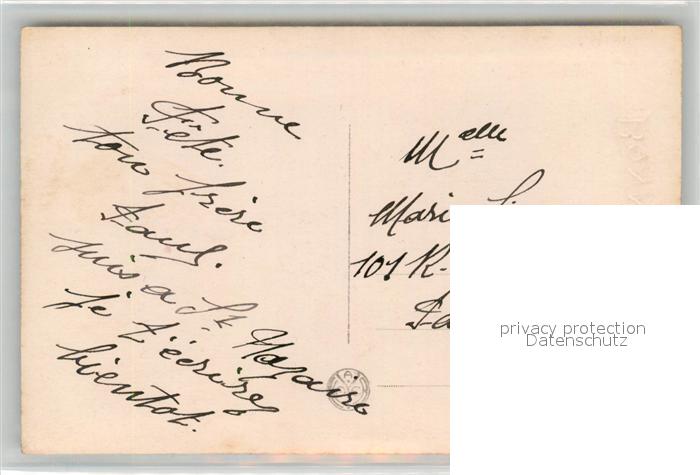 Bonne
Fête.
ton frère
Paul.
suis a St Nazaire
Je t'écrirez
bientot.
Melle
Mari
101 R.
Pa
privacy protection
Datenschutz